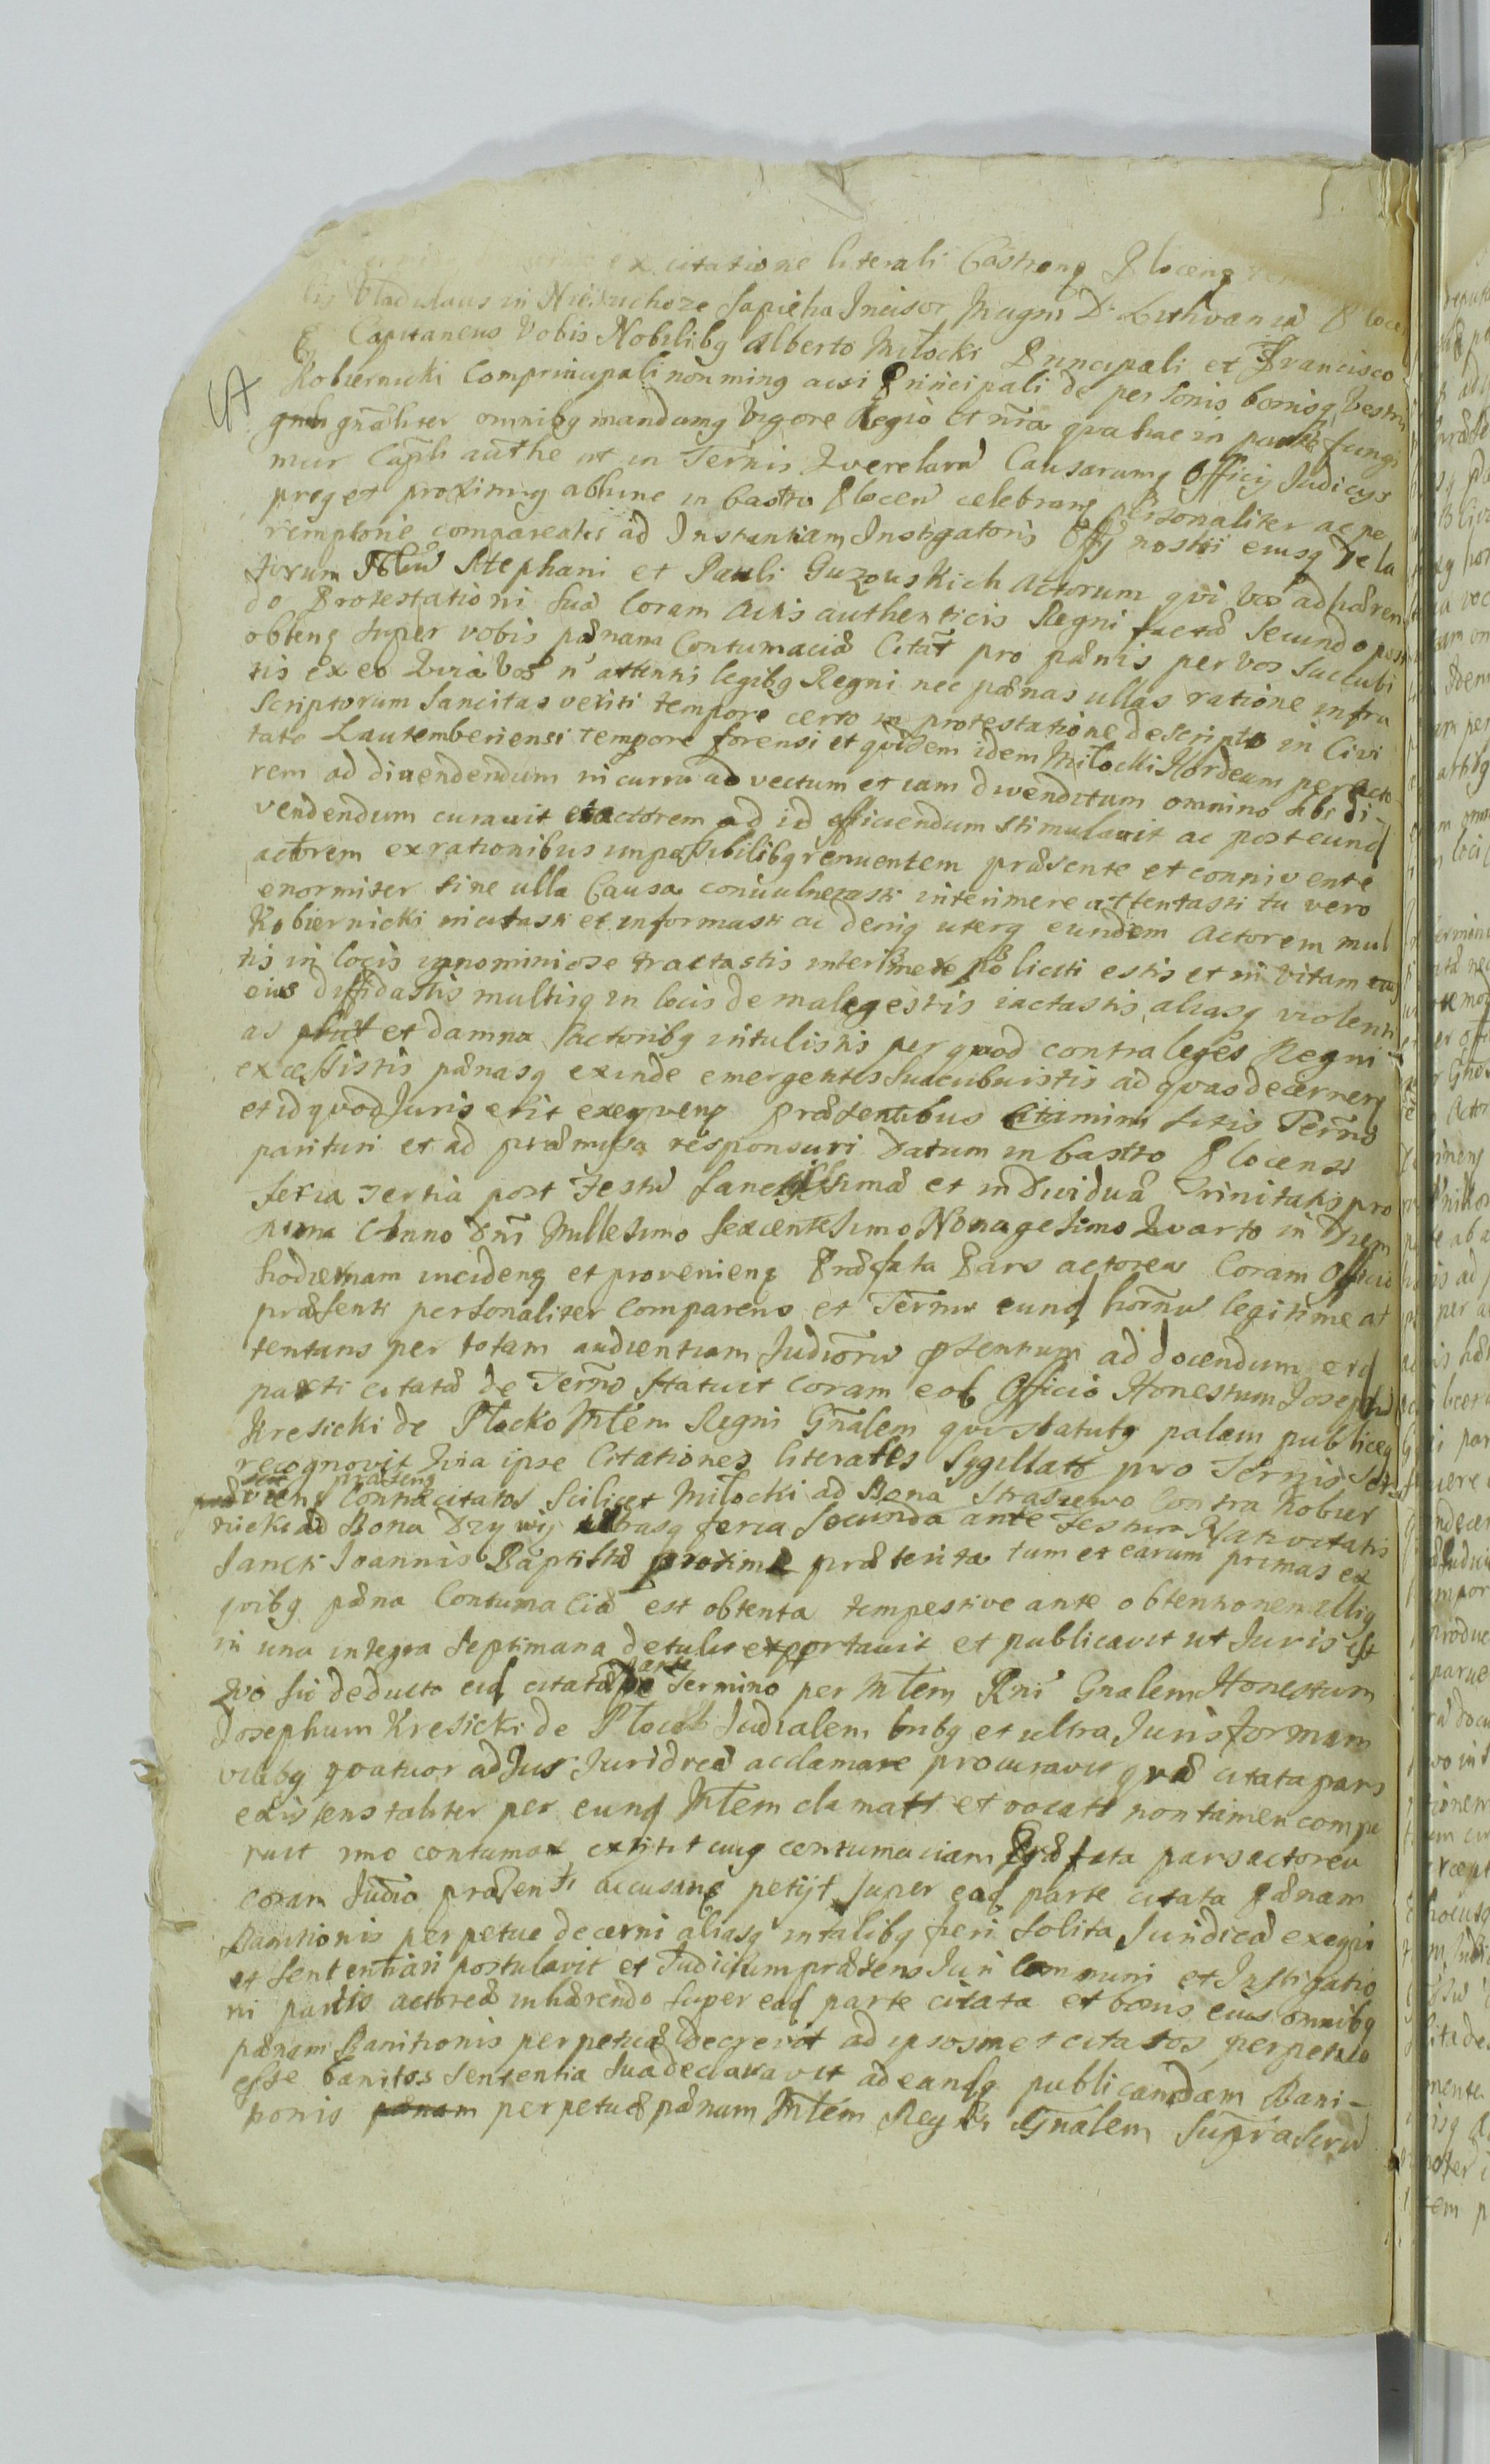 ex citatione literali Castrenq Plocenq
Vladislaus in Sapieha Incisor Magni D. Lithvaniæ Ploce
Capitaneus Vobis Nobilibq Alberto Miłocki Principali et Francisco
Kobiernicki Comprincipali non minq acsi Principali de personis bonisq Vestris
gnaliter omnibq mandamq Vigore Regio et nra qua hac in parte fungi
mur Capli authe ut in Ternis Querelaru Causarumq Officij Judicijs
preq et proximq abhinc in Castro Plocen celebranq personaliter ac pe
remptorie compareatis ad Instantiam Instigatoris Offij nostri eiusq Dela
torum Nbliu Stephani et Pauli Guzouskich Actorum qui Vos adhæren
do Protestationi suæ Coram Actis authenticis Regni factæ Secundo post
obtenq super vobis pænam Contumaciæ Citat pro pænis per vos succubi
tis ex eo Quia Vos n attentis legibq Regni nec pænas ullas ratione infra
Scriptorum Sancitas veriti tempore certo in protestatione descripto in Civi
tate Lautemberiensi tempore forensi et quidem idem Miłocki Hordeum per acto
rem ad divendendum in curru advectum et iam divenditum omnino sibi di-
vendendum curavit et actorem ad id efficiendum stimulavit ac post eund
actorem ex rationibus impossibilibq renuentem præsente et connivente
enormiter sine ulla Causa convulnerasti interimere attentasti tu vero
Kobiernicki incitasti et informasti ac deniq uterq eundem Actorem mul
tis in locis innominiose tractastis interimere polliciti estis et in vitam
eius diffidastis multisq in locis de malegestis iactastis, aliasq violenti
as et damna Actoribq intulistis per quod contra leges Regni
excessistis pænasq exinde emergentes succubuistis ad quas decernenq
et id quod Juris erit exequenq præsentibus Citamini sitis Terno
parituri et ad præmissa responsuri Datum in Castro Plocensi
feria tertia post Festu Sanctissimæ et individuæ Trinitatis pro
xima Anno Dni Millesimo Sexcentesimo Nonagesimo Quarto in Diem
hodiernam incidenq et provenienq Præfata Pars actorea Coram Officio
præsenti personaliter Comparens et Ternu eund hornu legitime at
tentans per totam audientiam Judioru psentium ad docendum eid
parti citatæ de Terno Statuit coram eod Officio Honestum Josephu
Kresicki de Płocko Mtem Regni Gnalem qui statutq palam publiceq
recognovit Quia ipse Citationes literales Sygillatt pro Ternis
præsenq
Contra citatos Scilicet Miłocki ad Bona Straszewo Contra Kobier
nicki ad Bona Drzywij feria Secunda ante Festum Nativitatis
Sancti Joannis Baptistæ proxime præterita tum et earum primas ex
quibq pæna Contumaciæ est obtenta tempestive ante obtentionem illiq
in una integra septimana detulit exportavit et publicavit ut Juris est
parte
Quo sic deducto eid citatæ de Termino per Mtem Rni Gnalem Honestum
Josephum Kresicki de Płock Judialem bnbq et ultra Juris formam
vicibq quatuor ad Jus Juridicæ acclamare procuravit quæ citata pars
existens taliter per eund Mtem clamatt et vocatt non tamen compa
ruit imo contumax extitit cuiq contumaciam Præfata pars actorea
coram Judio præsenti accusanq petijt super ead parte citata pænam
Banitionis perpetuæ decerni aliasq in talibq fieri solita Juridicæ exequi
et Sententiari postulavit et Judicium præsens Juri Communi et Instigatio
ni partis actoreæ inhærendo super ead parte citata et bonis eius omnibq
pænam Banitionis perpetuæ decrevit ad ipsosmet citatos perpetuo
esse banitos Sententia sua declaravit ad eandq publicandam Bani-
tionis pænam perpetuæ pænam Mtem Regni Gnalem Suprascru